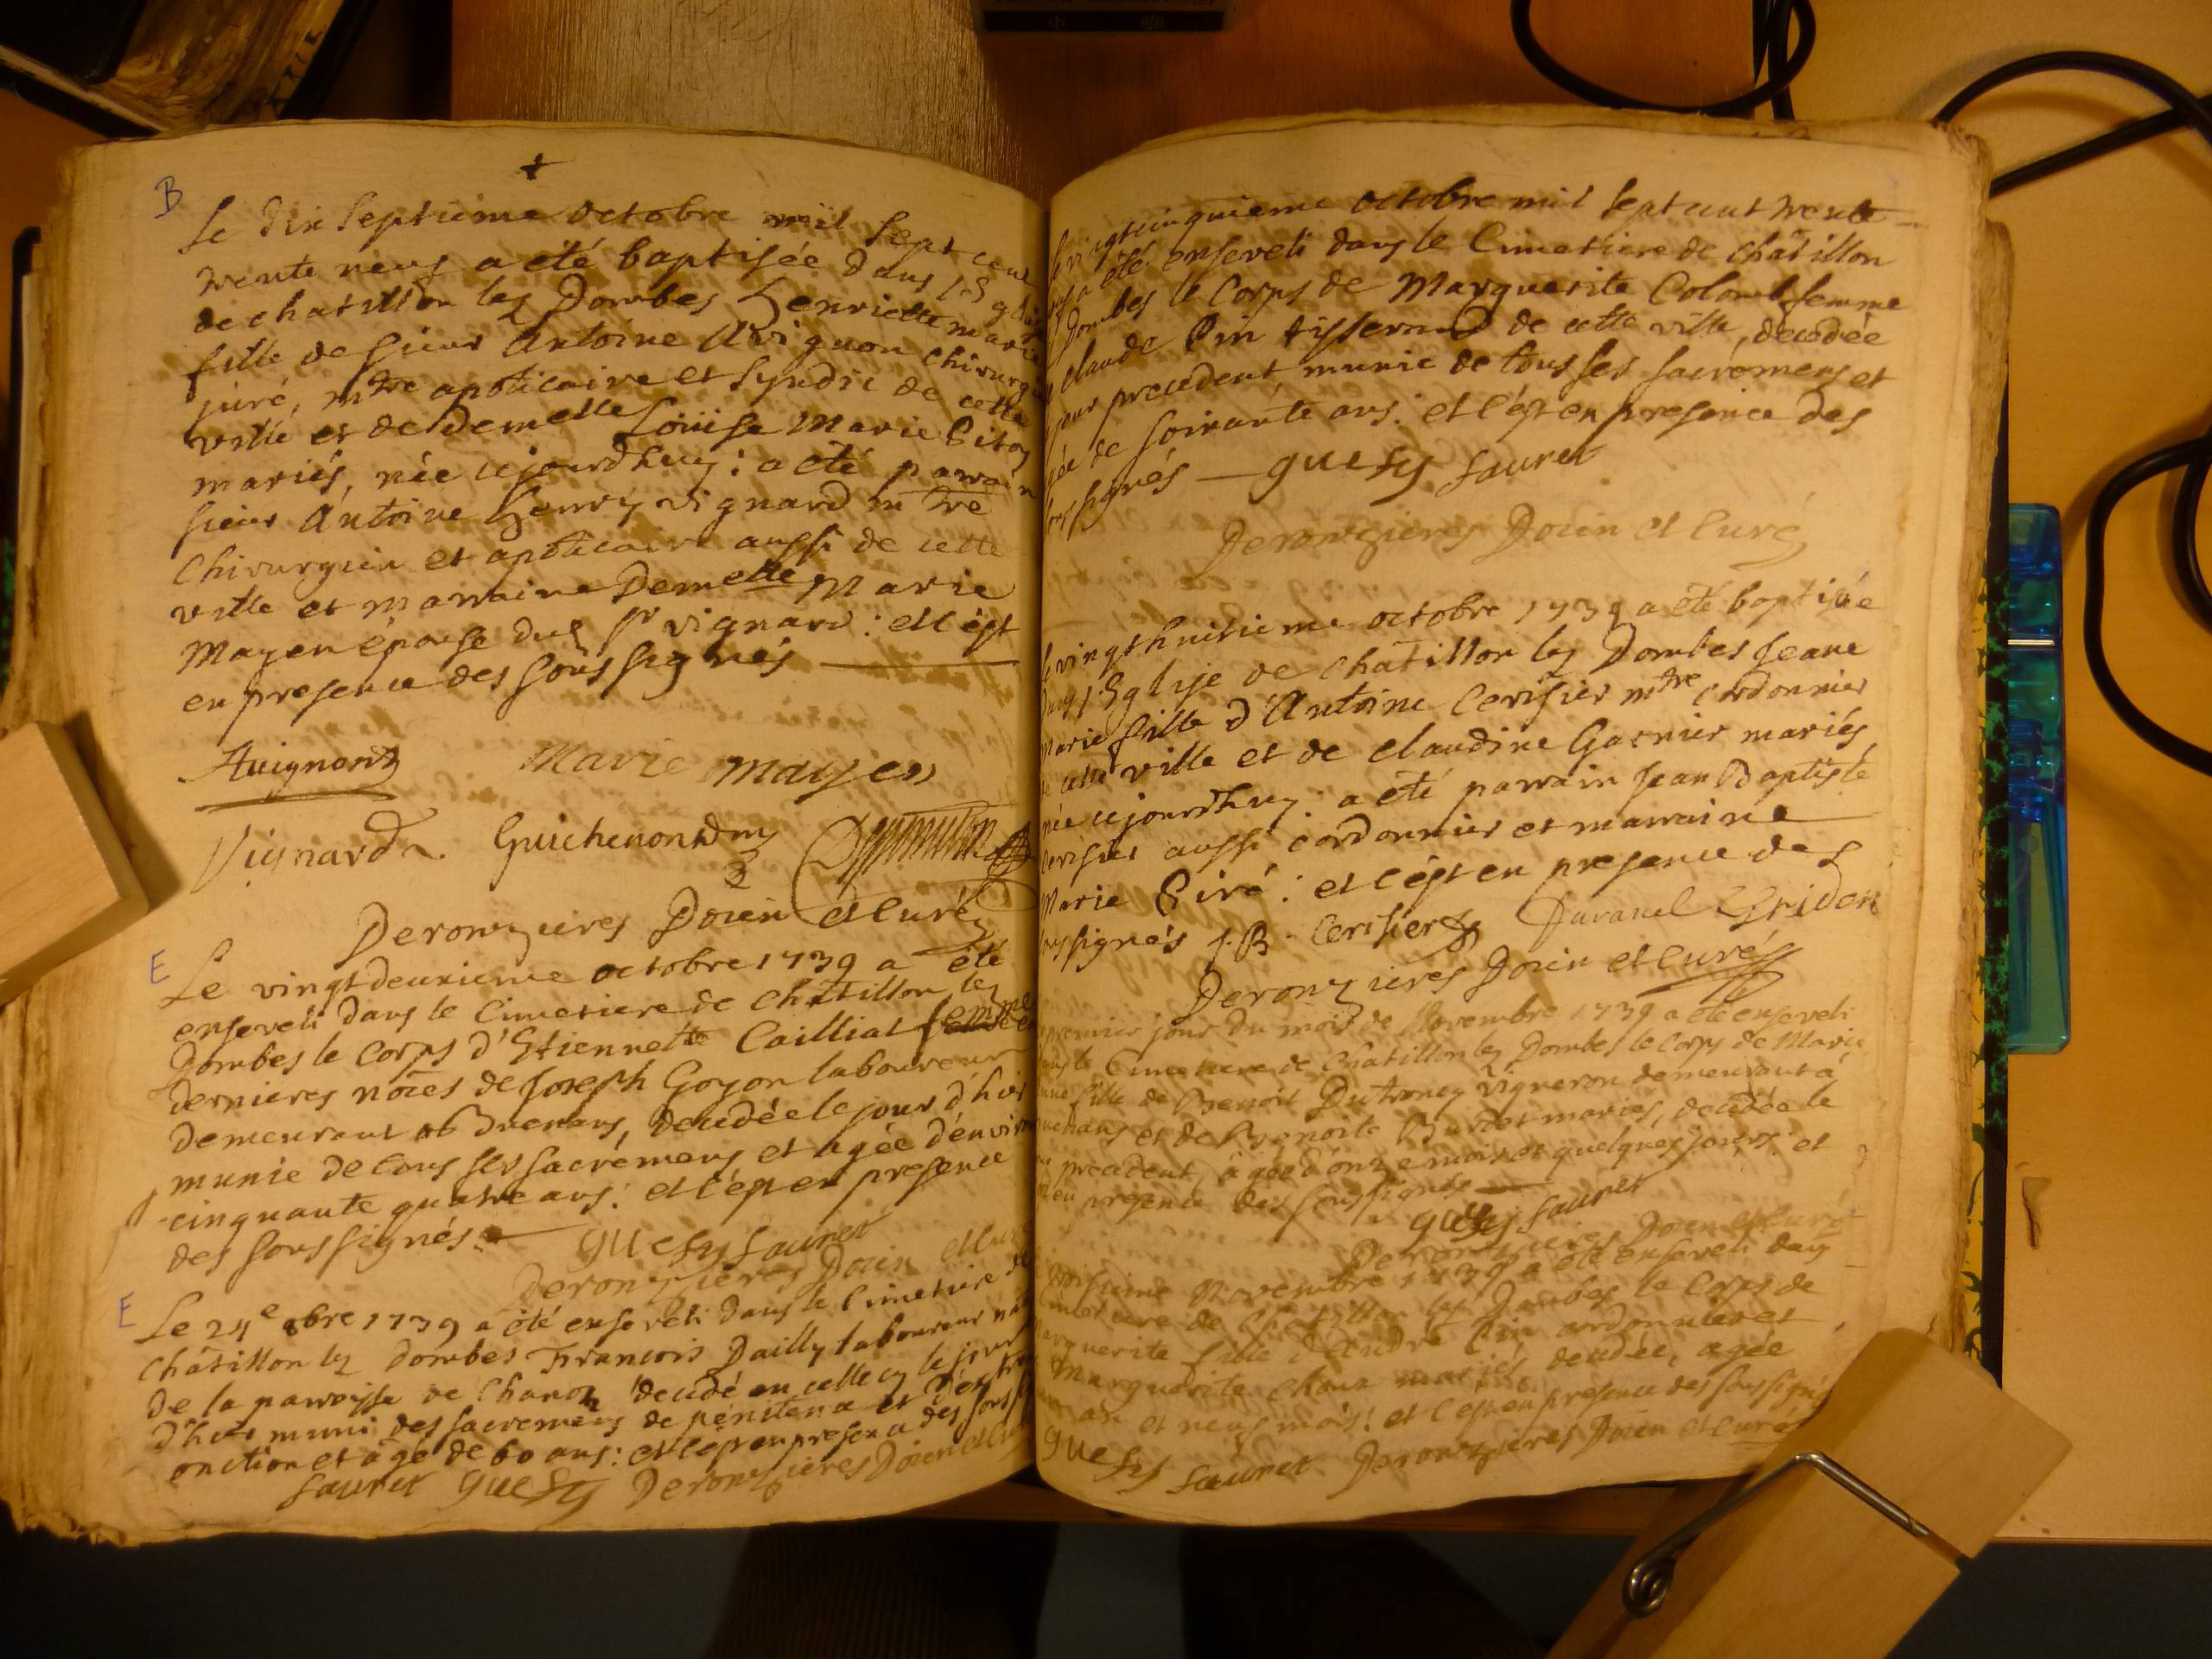 B
Le dix septieme octobre mil sept cent
trente neuf a été baptisée dans l'Eglise
de chatillon les Dombes henriette marie
fille de sieur Antoine Avignon chirurgien
juré, mtre apoticaire et syndic de cette
ville et de demelle Loüise Marie
mariés, née cejourdhuy : a été parrain
sieur Antoine henry vignard mtre
Chirurgien et apoticaire aussi de cette
ville et marraine Demelle Marie
Mayen épouse dud sr vignard : et c'est
en presence des soussignés
Avignon Marie mayen
Vignard Guichenon
Deronzieres Doien et Curé
E
Le vingtdeuxieme octobre 1739 a été
enseveli dans le Cimetiere de Châtillon les
Dombes le Corps d'Etiennette Cailliat femme
dernieres nôces de Joseph Goyon laboureur
demeurant décédée le jour d'hier
munie de tous ses sacremens et agée d'environ
cinquante quatre ans : et c'est en presence
des soussignés. guesy sauret
Deronzieres Doien et Curé
E
Le 24e 8bre 1739 a été enseveli dans le Cimetiere de
Châtillon les dombes Francois Dailly laboureur
de la parroisse de Chanoz décédé en celle cy le jour
d'hier muni des sacremens de pénitence et d'extreme
onction et âgé de 60 ans : et c'est en presence des
sauret guesy Deronzieres Doien et Curé
le vingtcinquieme octobre mil sept cent trente
neuf a été enseveli dans le Cimetiere de châtillon
les Dombes le Corps de Marguerite Colomb femme
de claude Pin tisserand de cette ville, décédée
le jour precedent, munie de tous ses sacremens et
agée de soixante ans : et c'est en presence des
soussignés guesy sauret
Deronzieres Doien et Curé
Le vingthuitieme octobre 1739 a été baptisée
dans l'Eglise de Châtillon les Dombes Jeane
Marie fille d'Antoine Cerisier mtre cordonnier
de cette ville et de claudine Garnier mariés
née cejourdhuy : a été parrain Jean Baptiste
Cerisier aussi cordonnier et marraine
Marie Piré : et c'est en presence des
soussignés J. B. Cerisier
Deronzieres Doien et Curé
premier jour du mois de Novembre 1739 a été enseveli
dans le Cimetiere de Châtillon les Dombes le Corps de Marie
fille de Benoit Dutroncy vigneron demeurant à
et de Benoite mariés, décédée le
precedent, âgée d'onze mois et quelques jours : et
c'est en presence des soussignés
guesy sauret
Deronzieres Doien et Curé
troisieme Novembre 1739 a été enseveli dans
Cimetiere de Châtillon les Dombes le Corps de
Marguerite fille d'Andre Pin cordonnier et
Marguerite mariés décédée, agée
an et neuf mois : et c'est en presence des soussignés
guesy sauret Deronzieres Doien et curé